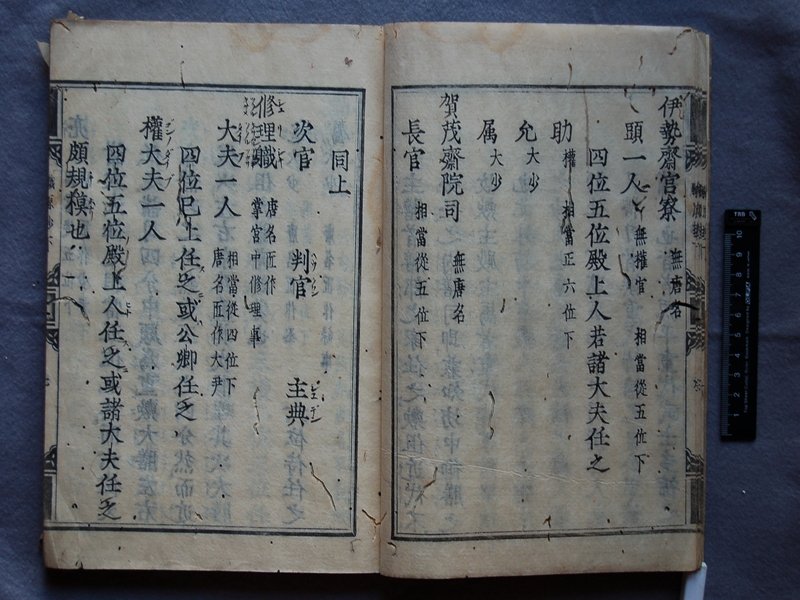 伊勢齋宮寮 無唐名
頭一人 無權官 相當從五位下
四位五位殿上人若諸大夫任之
助 權 相當正六位下
允 大少
属 大少
賀茂齋院司 無唐名
長官 相當從五位下
同上
次官 判官 主典
修理職 唐名匠作 掌宮中修理事
大夫一人 相當從四位下 唐名匠作大尹
四位已上任之或公卿任之
權大夫一人
四位五位殿上人任之或諸大夫任之
頗規模也